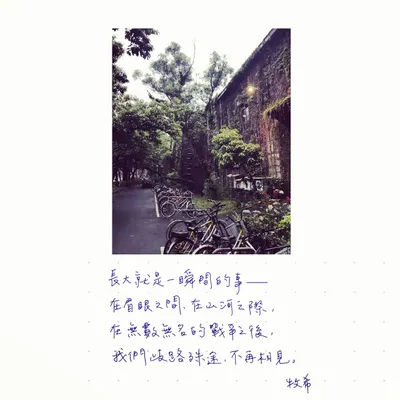 長大就是一瞬間的事——
在眉眼之間,在山河之際,
在無數無名的戰爭之後,
我們歧路殊途,不再相見。
牧希